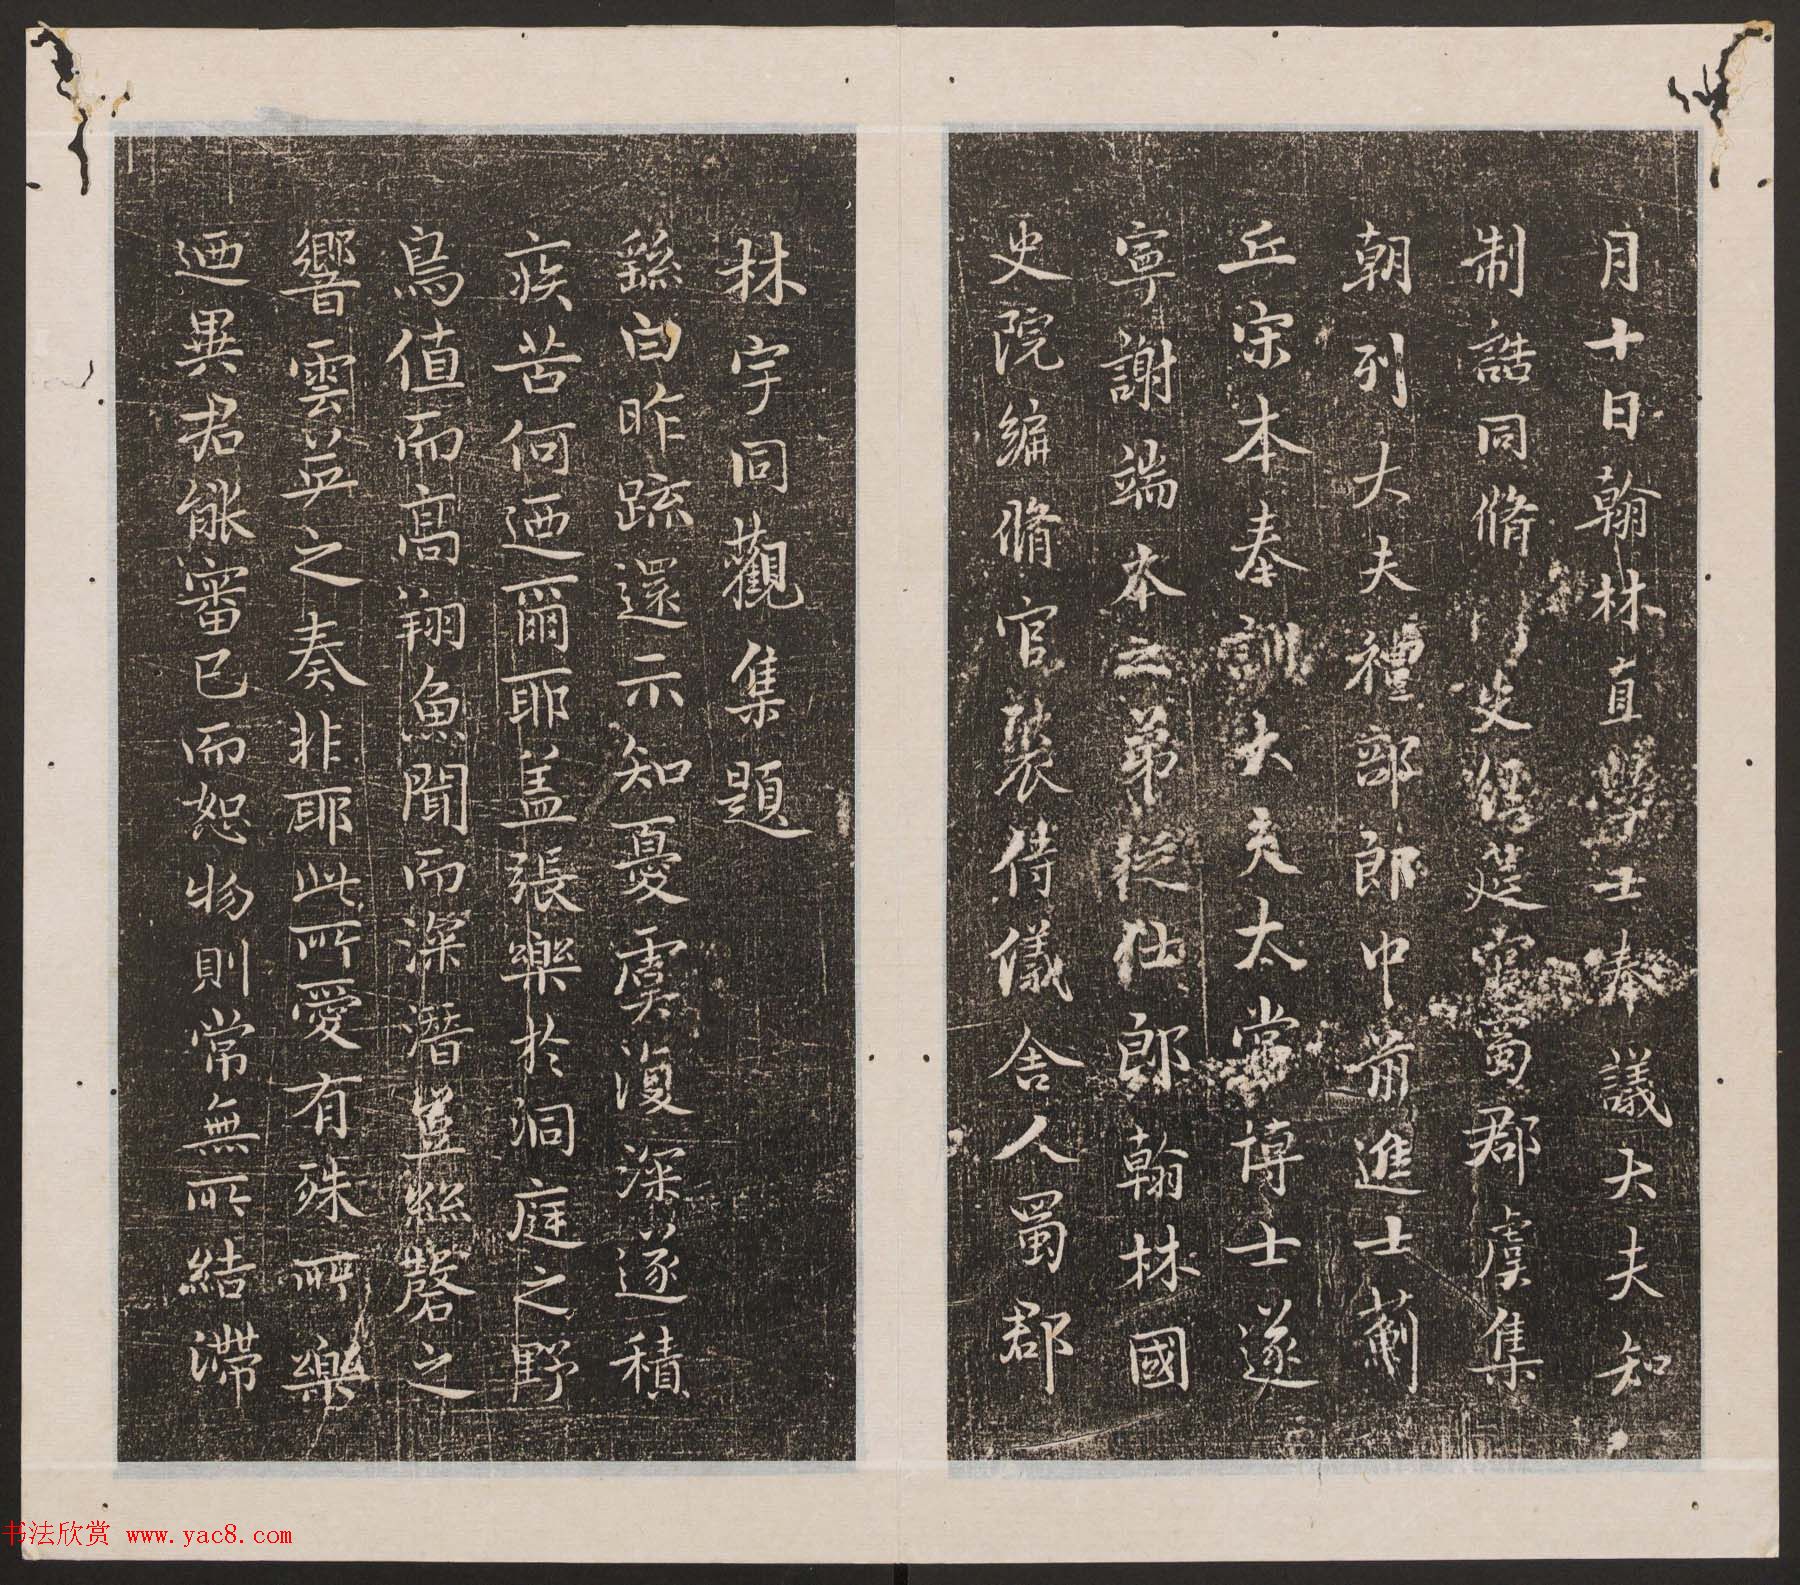 月十日翰林直學士奉議大夫知
制誥同脩國史經筵官蜀郡虞集
朝列大夫禮部郎中前進士薊
丘宋本奉訓大夫太常博士遂
寧謝端本之弟從仕郎翰林國
史院編脩官褧侍儀舍人蜀郡
林宇同觀集題
繇白昨疏還示知憂虞復深遂積
疾苦何迺爾耶盖張樂於洞庭之野
鳥值而高翔魚聞而深潛豈絲磬之
響雲英之奏非耶此所愛有殊所樂
迺異君能審己而恕物則常無所結滯
书法欣赏 www.yac8.com